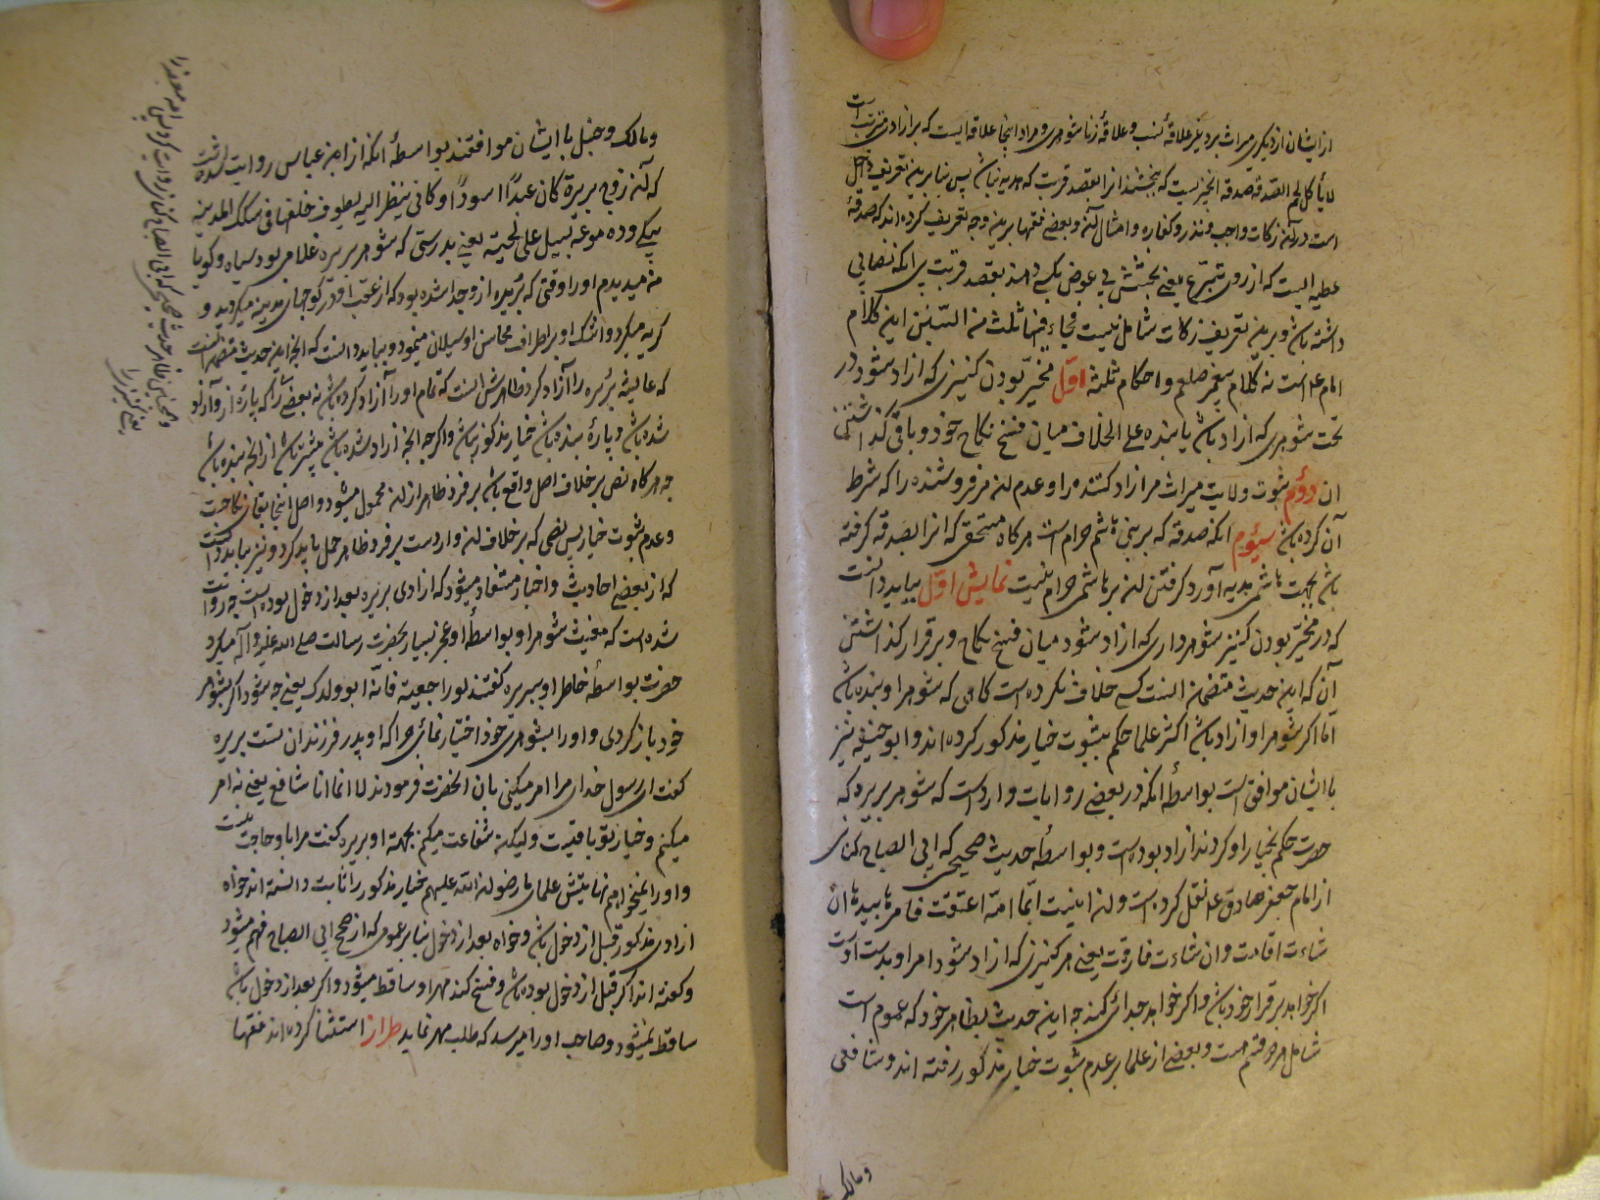 از ایشان از دیگری میراث برد بغیر علاقهٔ نسب و علاقهٔ زناشوهری و مراد اینجا علاقه ایست که بر ازادی مترتب است
لا یأکل لحم الصدقة صدقه انچیزیست که بخشند انرا بقصد قربت که هدیه نباشد پس بنا برین تعریف داخل
است در آن زکات واجب و نذر و کفاره و امثال آن و بعضی فقها برین وجه تعریف کرده‌اند که صدقه
عطیه ایست که از روی تبرّع یعنی بخشش بی عوض بکسی دهند بقصد قربت بی انکه نصابی
داشته باشد و برین تعریف زکات شامل نیست فجاء فیها ثلث من السنن این کلام
امام ع است نه کلام پیغمبر صلعم و احکام ثلثه اوّل مخیّر بودن کنیزی که ازاد شود در
تحت شوهری که ازاد باشد یا بنده علی الخلاف میان فسخ نکاح خود و باقی گذاشتن
ان دویم ثبوت ولایت میراث مر ازاد کننده را و عدم ان مر فروشنده را که شرط
آن کرده باشد سیّوم انکه صدقه که بر بنی هاشم حرام است هر گاه مستحق که انرا بصدقه گرفته
باشد بجهت هاشمی هدیه آورد گرفتن ان بر هاشمی حرام نیست نمایش اوّل بباید دانست
که در مخیّر بودن کنیز شوهر داری که ازاد شود میان فسخ نکاح و برقرار گذاشتن
آن که این حدیث متضمن انست کسی خلاف نکرده است گاهی که شوهر او بنده باشد
امّا اگر شوهر او ازاد باشد اکثر علما حکم بثبوت خیار مذکور کرده اند و ابو حنیفه نیز
با ایشان موافق است بواسطهٔ انکه در بعضی روایات وارد است که شوهر بریره که
حضرت حکم بخیار او کردند ازاد بوده است و بواسطهٔ حدیث صحیحی که ابی الصباح کنانی
از امام جعفر صادق ع نقل کرده است و ان اینست ایّما امة اعتقت فامرها بیدها ان
شاءت اقامت و ان شاءت فارقت یعنی هر کنیزی که ازاد شود امر او بدست اوست
اگر خواهد برقرار خود باشد و اگر خواهد جدائی کند چه این حدیث بظاهر خود که عموم است
شامل هر دو قسم هست و بعضی از علما بر عدم ثبوت خیار مذکور رفته اند و شافعی
و مالک
و مالک و حنبل با ایشان موافقند بواسطهٔ انکه از ابن عباس روایت شده است
که ان زوج بریرة کان عبدًا اسودًا و کانی ینظر الیه یطوف خلفها فی سکک المدینه
یبکی و دموعه تسیل علی لحیته یعنی بدرستی که شوهر بریره غلامی بود سیاه و گویا
من میدیدم او را وقتی که بریره از و جدا شده بود که از عقب او در کوچهای مدینه میگردید و
گریه میکرد و اشک او بر اطراف محاسن او سیلان مینمود و بباید دانست که انچه این حدیث متضمن انست
که عایشه بریره را آزاد کرد ظاهرش انست که تمام او را آزاد کرده باشد نه بعضی را که پارهٔ از و آزاد
شده باشد و پارهٔ بنده باشد خیار مذکور نباشد و اگرچه انچه ازاد شده باشد بیشتر باشد از انچه بنده باشد
چه هر گاه نص بر خلاف اصل واقع باشد بر فرد ظاهر از ان محمول میشود و اصل اینجا بقای نکاحست
و عدم ثبوت خیار پس نصی که بر خلاف ان واردست بر فرد ظاهر حمل باید کرد و نیز بباید دانست
که از بعضی احادیث و اخبار مستفاد میشود که ازادی بریره بعد از دخول بوده است چه روایت
شده است که مغیث شوهر او بواسطهٔ او عجز بسیار بحضرت رسالت صلی الله علیه و آله میکرد
حضرت بواسطهٔ خاطر او ببریره گفتند لو راجعتیه فانّه ابو ولدک یعنی چه شود اگر بشوهر
خود باز گردی و او را بشوهری خود اختیار نمائی چرا که او پدر فرزندان تست بریره
گفت ای رسول خدا مرا امر میکنی بان انحضرت فرمودند لا انما انا شافع یعنی نه امر
میکنم و خیار تو باقیست ولیکن شفاعت میکنم بجهة او بریره گفت مرا باو حاجت نیست
و او را نمیخواهم نمایش علمای ما رضوان الله علیهم خیار مذکور را ثابت دانسته اند خواه
ازادی مذکور قبل از دخول باشد و خواه بعد از دخول بنا بر عمومی که از صحیح ابی الصباح فهم میشود
و گفته اند اگر قبل از دخول بوده باشد و فسخ کند مهر او ساقط میشود و اگر بعد از دخول باشد
ساقط نمیشود و صاحب او را میرسد که طلب مهر نماید طراز استثنا کرده اند فقها